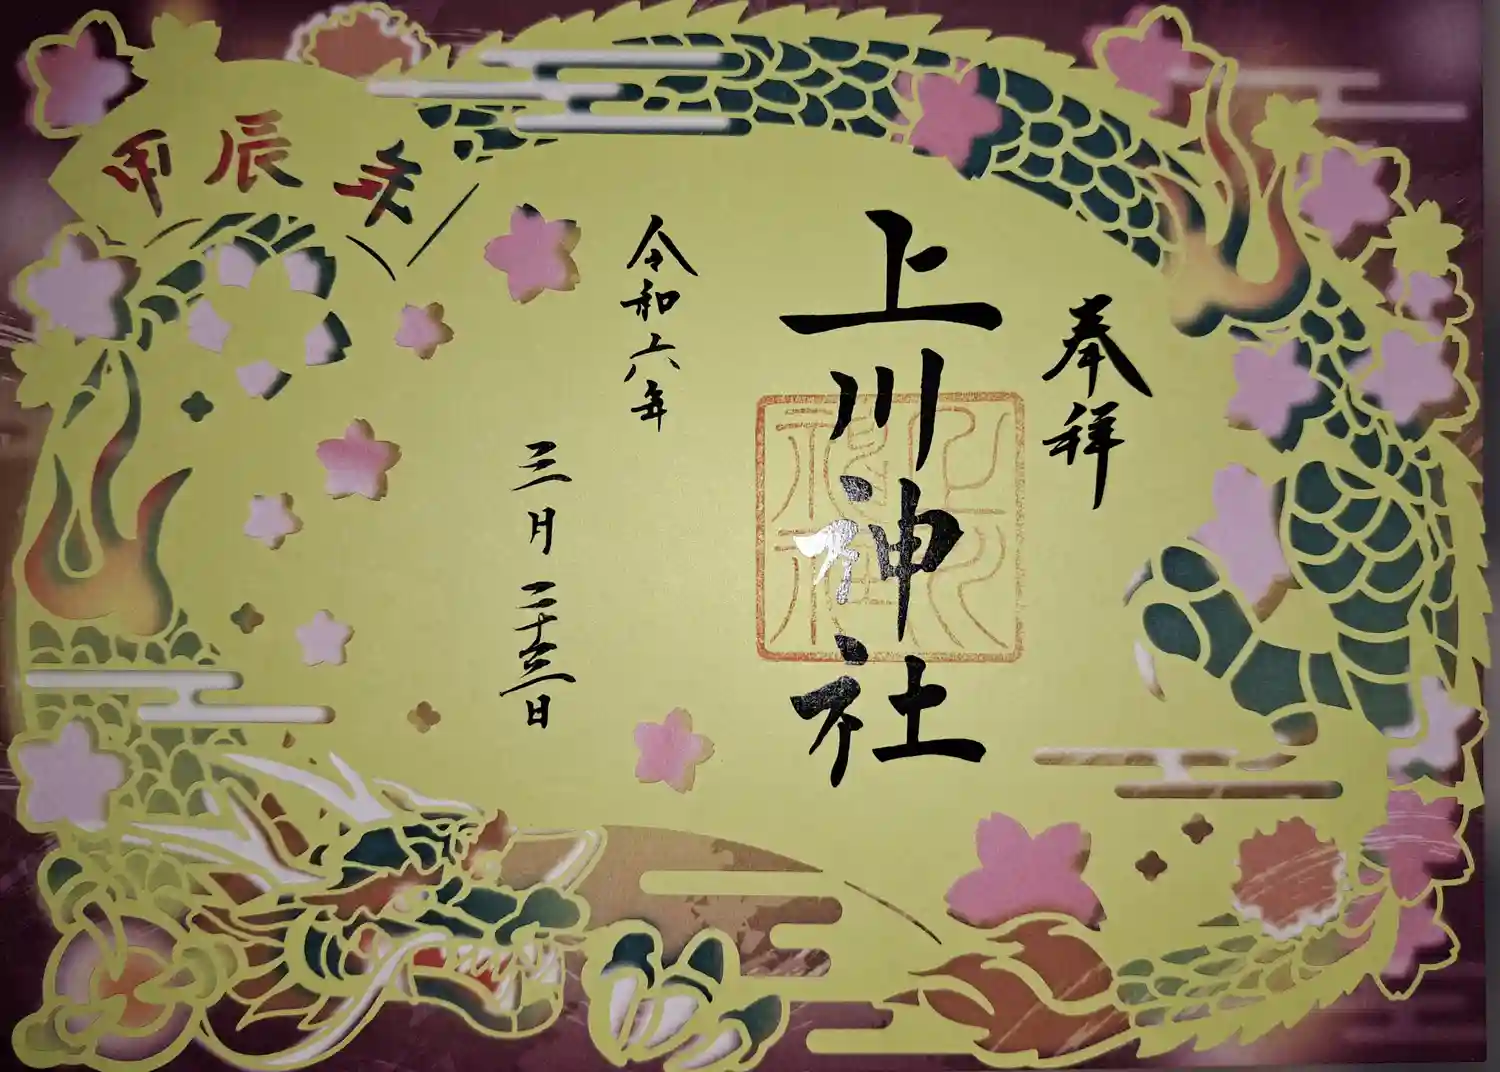 奉拝
上川神社
上川
神社
令和六年
三月二十三日
甲辰年